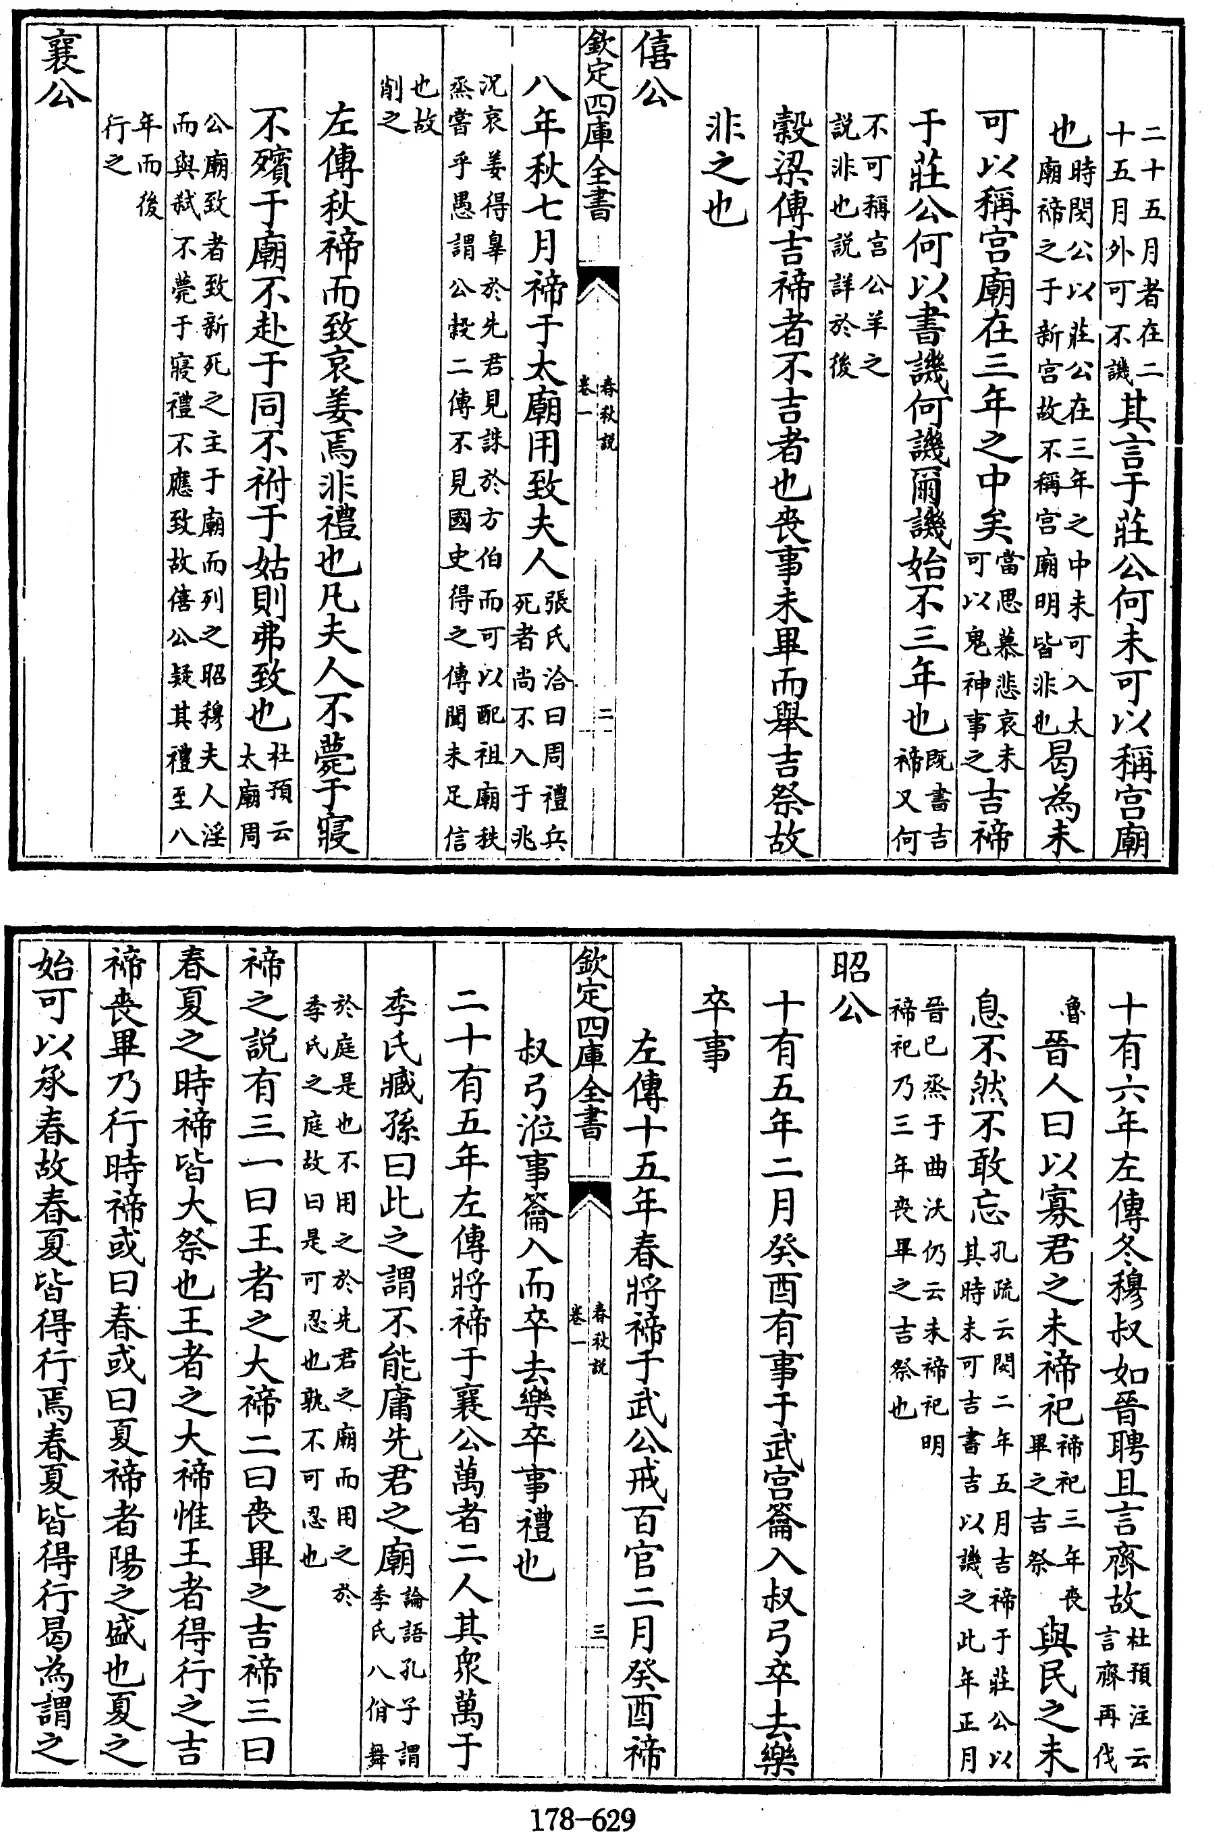 二十五月者在二
十五月外可不譏其言于莊公何未可以稱宮廟
也時閔公以莊公在三年之中未可入太
廟禘之于新宮故不稱宮廟明皆非也曷為未
可以稱宮廟在三年之中矣當思慕悲哀未
可以鬼神事之吉禘
于莊公何以書譏何譏爾譏始不三年也既書吉
禘又何
不可稱宮公羊之
説非也説詳於後
穀梁傳吉禘者不吉者也喪事未畢而舉吉祭故
非之也
僖公
欽定四庫全書
春秋説
卷一
二
八年秋七月禘于太廟用致夫人張氏洽曰周禮兵
死者尚不入于兆
況哀姜得辠於先君見誅於方伯而可以配祖廟秩
烝嘗乎愚謂公穀二傳不見國史得之傳聞未足信
也故
削之
左傳秋禘而致哀姜焉非禮也凡夫人不薨于寢
不殯于廟不赴于同不祔于姑則弗致也杜預云
太廟周
公廟致者致新死之主于廟而列之昭穆夫人淫
而與弑不薨于寢禮不應致故僖公疑其禮至八
年而後
行之
襄公
十有六年左傳冬穆叔如晉聘且言齊故杜預注云
言齊再伐
魯晉人曰以寡君之未禘祀禘祀三年喪
畢之吉祭與民之未
息不然不敢忘孔疏云閔二年五月吉禘于莊公以
其時未可吉書吉以譏之此年正月
晉已烝于曲沃仍云未禘祀明
禘祀乃三年喪畢之吉祭也
昭公
十有五年二月癸酉有事于武宮籥入叔弓卒去樂
卒事
左傳十五年春將禘于武公戒百官二月癸酉禘
欽定四庫全書
春秋説
卷一
三
叔弓涖事籥入而卒去樂卒事禮也
二十有五年左傳將禘于襄公萬者二人其衆萬于
季氏臧孫曰此之謂不能庸先君之廟論語孔子謂
季氏八佾舞
於庭是也不用之於先君之廟而用之於
季氏之庭故曰是可忍也孰不可忍也
禘之説有三一曰王者之大禘二曰喪畢之吉禘三曰
春夏之時禘皆大祭也王者之大禘惟王者得行之吉
禘喪畢乃行時禘或曰春或曰夏禘者陽之盛也夏之
始可以承春故春夏皆得行焉春夏皆得行曷為謂之
178-629